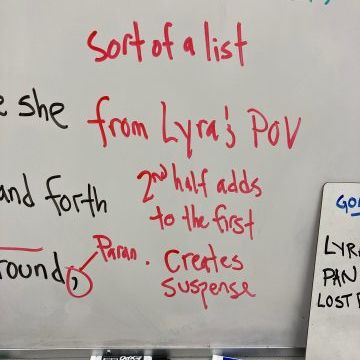 sort of a list
e she
from Lyra's POV
and forth
2nd half adds
to the first
round,
Paran.
· Creates
suspense
GO
LYR
PAN
LOST